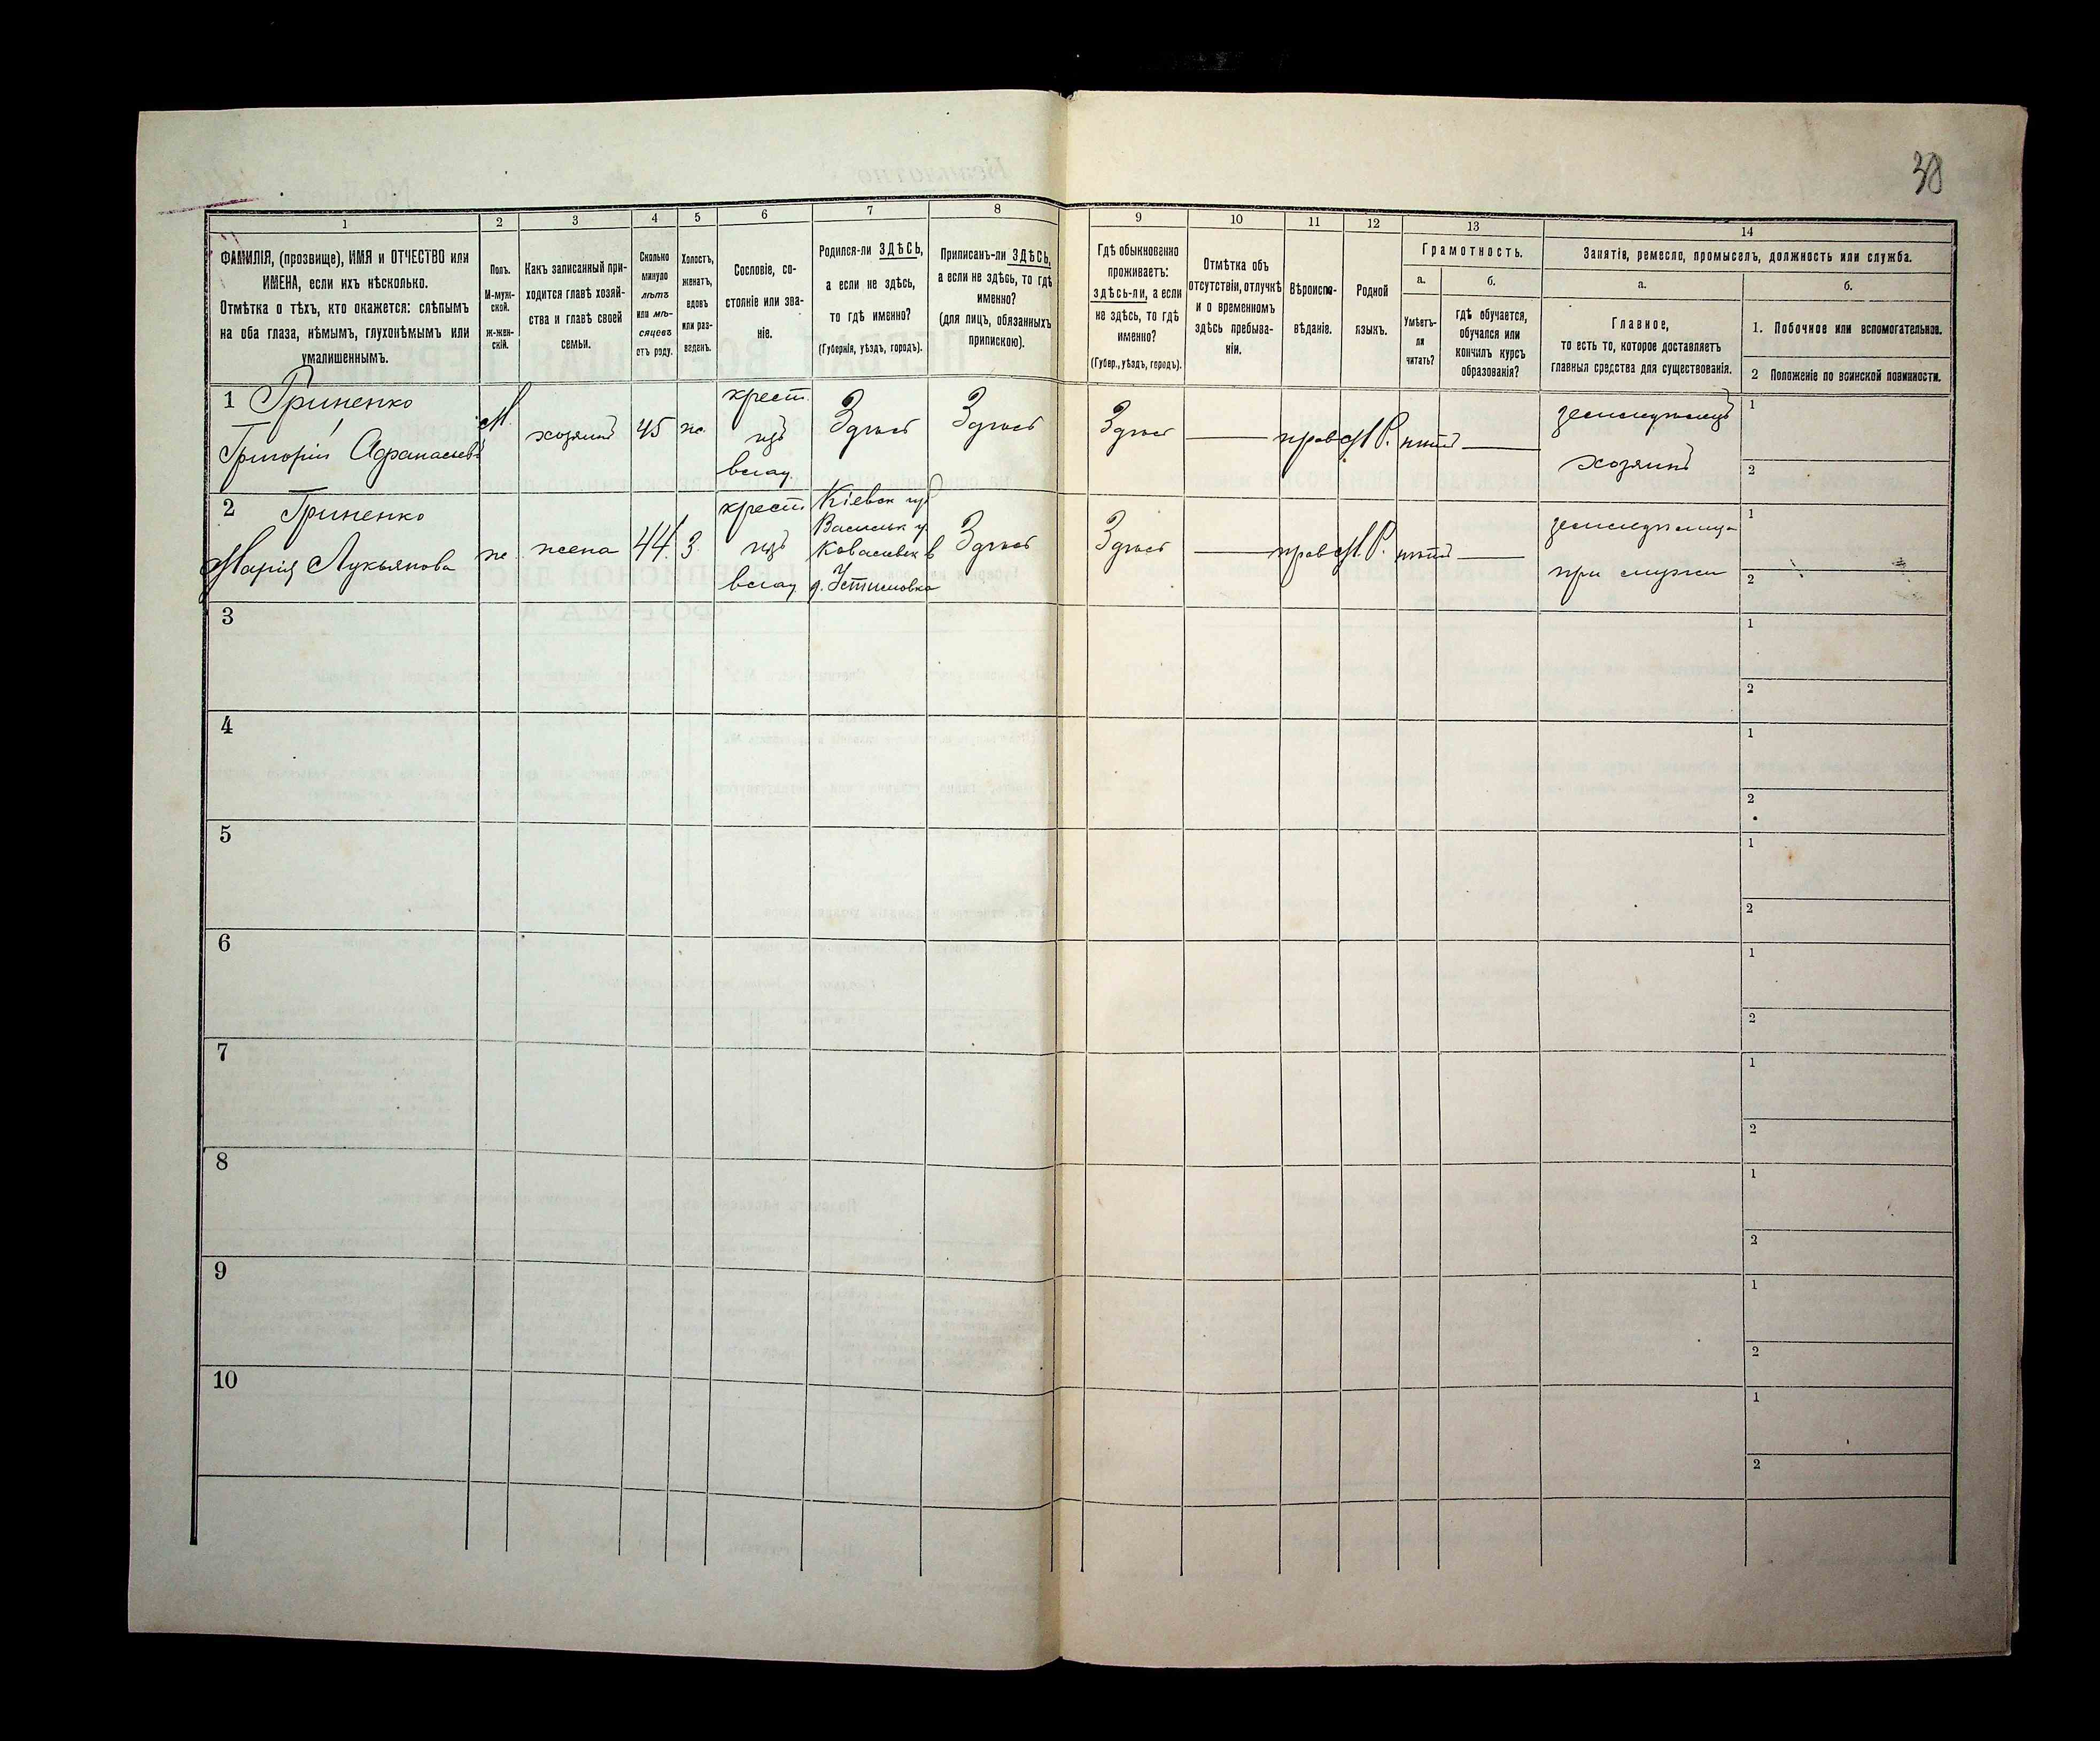 38
1
2
3
4
5
6
7
8
9
10
11
12
13
14
ФАМИЛІЯ, (прозвище), ИМЯ и ОТЧЕСТВО или
ИМЕНА, если ихъ нѣсколько.
Отмѣтка о тѣхъ, кто окажется: слѣпымъ
на оба глаза, нѣмымъ, глухонѣмымъ или
умалишеннымъ.
Полъ.
М-муж-
ской.
ж-жен-
скій.
Какъ записанный при-
ходится главѣ хозяй-
ства и главѣ своей
семьи.
Сколько
минуло
лѣтъ
или мѣ-
сяцевъ
отъ роду.
Холостъ,
женатъ,
вдовъ
или раз-
веденъ.
Сословіе, со-
стояніе или зва-
ніе.
Родился-ли ЗДѢСЬ,
а если не здѣсь,
то гдѣ именно?
(Губернія, уѣздъ, городъ).
Приписанъ-ли ЗДѢСЬ,
а если не здѣсь, то гдѣ
именно?
(для лицъ, обязанныхъ
припискою).
Гдѣ обыкновенно
проживаетъ:
здѣсь-ли, а если
не здѣсь, то гдѣ
именно?
(Губер., уѣздъ, городъ).
Отмѣтка объ
отсутствіи, отлучкѣ
и о временномъ
здѣсь пребыва-
ніи.
Вѣроиспо-
вѣданіе.
Родной
языкъ.
Грамотность.
а.
Умѣетъ-
ли
читать?
б.
гдѣ обучается,
обучался или
кончилъ курсъ
образованія?
Занятіе, ремесло, промыселъ, должность или служба.
а.
Главное,
то есть то, которое доставляетъ
главныя средства для существованія.
б.
1. Побочное или вспомогательное.
2 Положеніе по воинской повинности.
1 Гриненко
Григорій Афанасьевъ
М.
хозяинъ
45
ж.
крест.
изъ
влад.
Здѣсь
Здѣсь
Здѣсь
правосл
М.Р.
нѣтъ
земледѣлецъ
хозяинъ
1
2
2 Гриненко
Марія Лукьянова
ж.
жена
44
З.
крест
изъ
влад.
Кіевск губ
Васильк у.
Ковалевск в
д. Устимовка
Здѣсь
Здѣсь
правосл
М.Р.
нѣтъ
земледѣлица
при мужѣ
1
2
3
1
2
4
1
2
5
1
2
6
1
2
7
1
2
8
1
2
9
1
2
10
1
2